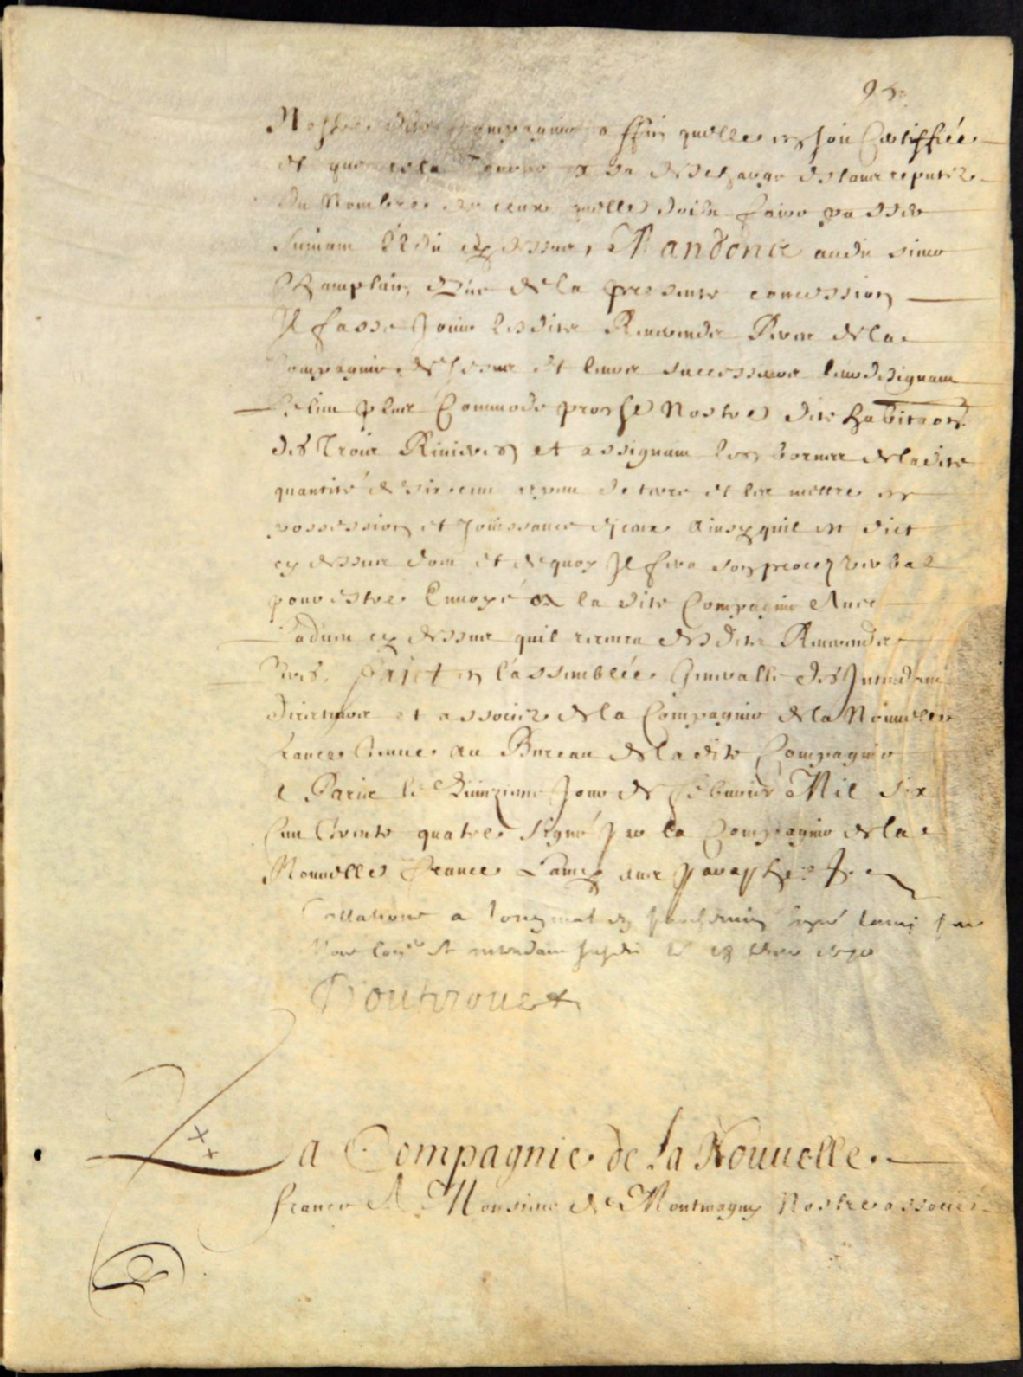 95
Nostre dite Compagnie affin quelle en soit Certiffiée
et que cela tourne a sa descharge et leur reputé
du Nombre de ceux quelle doibt faire passer
suivant Edit cy dessus, Mandons audit sieur
Champlain que de la presente concession
Il fasse Jouir lesdits Reverendz Peres de la
Compagnie de Jesus et leurs successeurs leur designant
le lieu plus Commode proche Nostre dite habitaon
des Trois Rivieres et assignant les bornes de ladite
quantité de six cens arpens de terre et les mettre en
possession et Jouissance d'jceux Ainsy quil est dict
cy dessus dont et dequoy Il fera son procez verbal
pour estre Envoyé a la dite Compagnie Avec
ladveu cy dessus quil retirera desdits Reverendz
Peres. Faict en l'assemblée Generalle des Intendant
directeurs et associez de la Compagnie de la Nouvelle
France tenue au Bureau de ladite Compagnie
a Paris le Quinzieme Jour de Febvrier Mil six
Cent trente quatre Signé Par la Compagnie de la
Nouvelle France Lamy avec paraphe
Collationé a loriginal en parchemin signé Lamy par
Nous Con.er et intendant
Boutroüe
La Compagnie de la Nouuelle
france A Monsieur de Montmagny Nostre associé